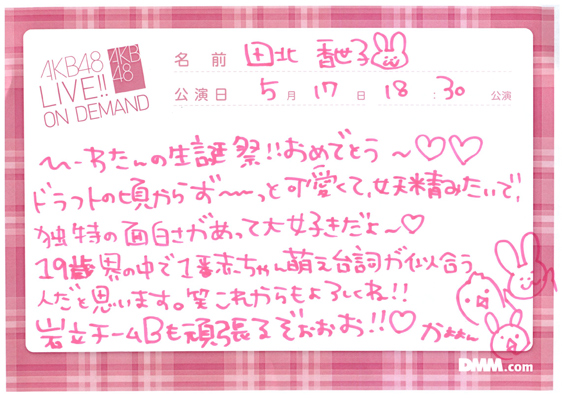 AKB48
LIVE!!
ON DEMAND
AKB
48
名 前 田北 香世子
公演日 5 月 17 日 18 : 30 公演
ひーわたんの生誕祭!!おめでとう～♡♡
ドラフトの頃からず～～っと可愛くて、妖精みたいで、
独特の面白さがあって大好きだよ～♡
19歳界の中で1番赤ちゃん萌え台詞が似合う
人だと思います。笑 これからもよろしくね!!
岩立チームBも頑張るぞぉぉお!!♡ かぉぉん
DMM.com